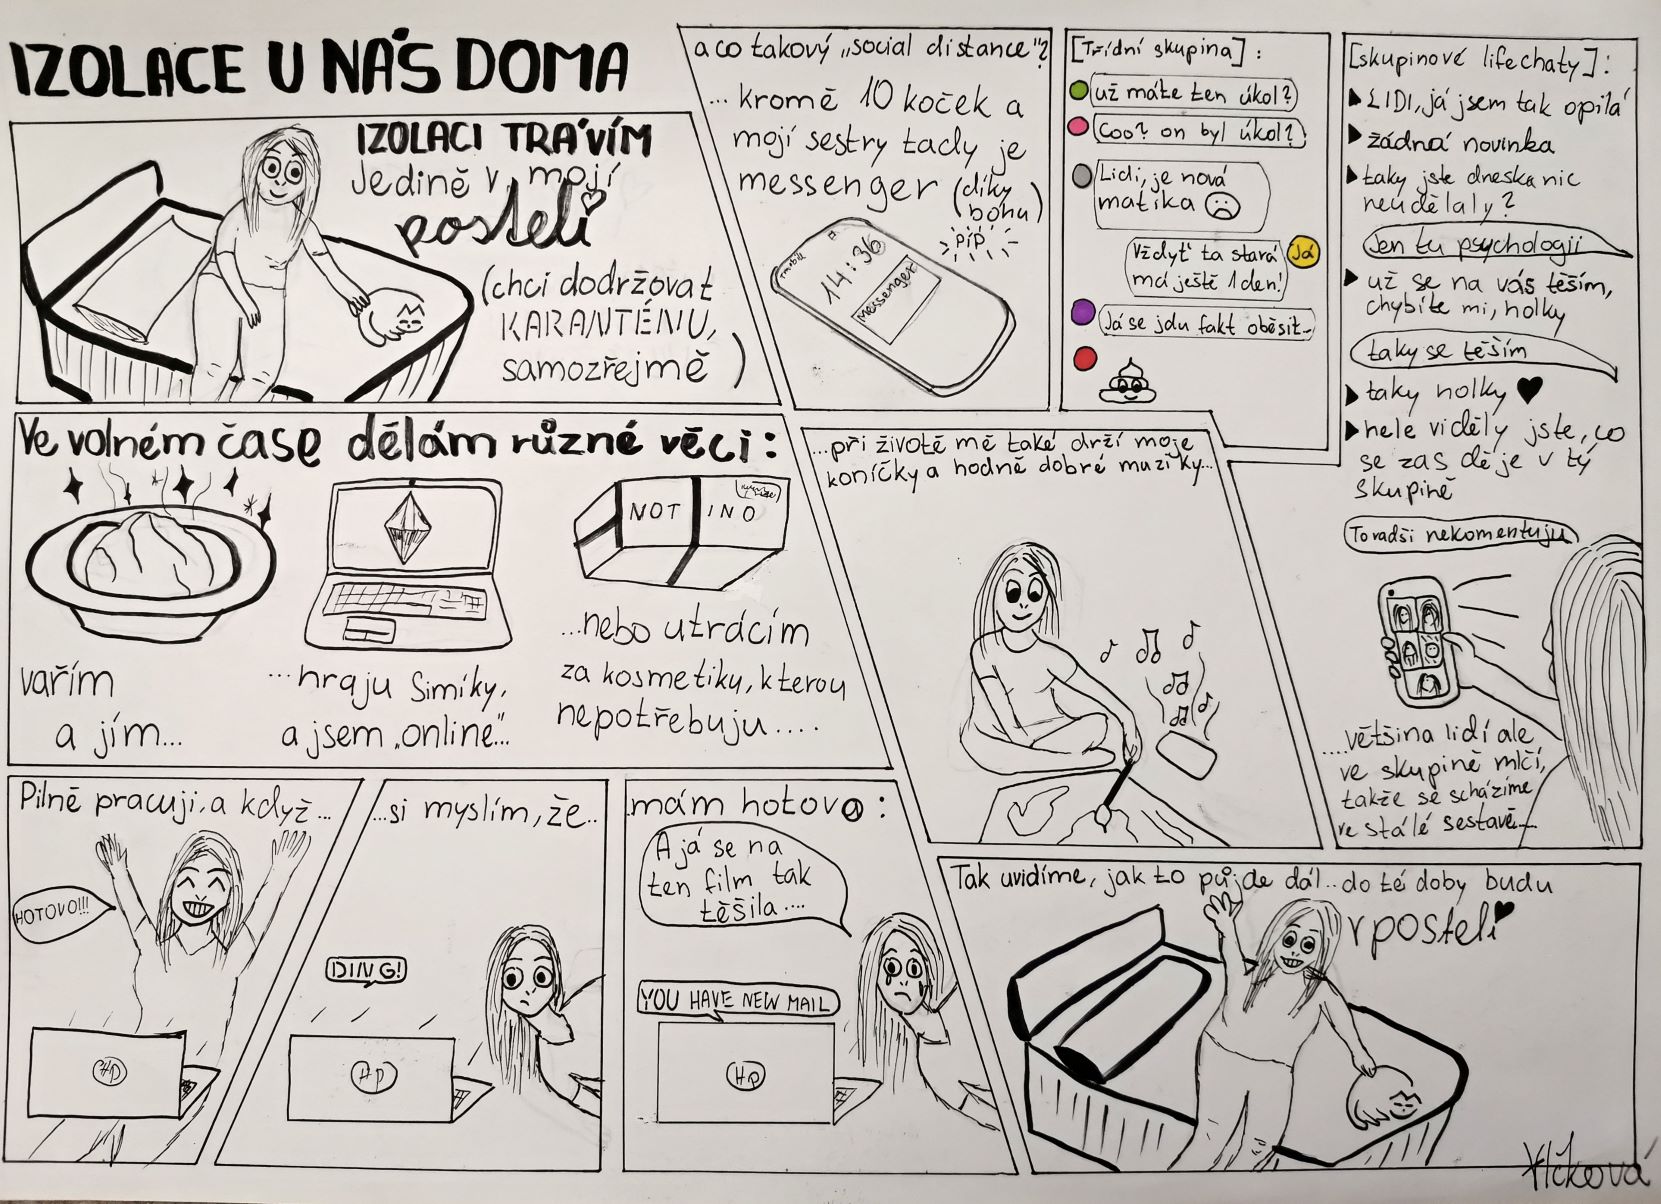 IZOLACE U NÁS DOMA
IZOLACI TRÁVÍM
Jedině v mojí
posteli
(chci dodržovat
KARANTÉNU,
samozřejmě)
a co takový „social distance"?
... kromě 10 koček a
mojí sestry tady je
messenger (díky
bohu)
píp
14:36
messenger
[Třídní skupina]:
už máte ten úkol?
Coo? on byl úkol?
Lidi, je nová
matika
Vždyť ta stará
má ještě 1 den!
Já
Já se jdu fakt oběsit...
[skupinové lifechaty]:
LIDI, já jsem tak opilá
žádná novinka
taky jste dneska nic
neudělaly?
Jen tu psychologii
už se na vás těším,
chybíte mi, holky
taky se těším
taky holky
hele viděly jste, co
se zas děje v tý
skupině
To radši nekomentuju
....většina lidí ale
ve skupině mlčí,
takže se scházíme
ve stálé sestavě...
Ve volném čase dělám různé věci:
NOTINO
vařím
a jím...
...hraju Simíky,
a jsem „online"...
...nebo utrácím
za kosmetiku, kterou
nepotřebuju....
...při životě mě také drží moje
koníčky a hodně dobré muziky...
Pilně pracuji, a když...
HOTOVO!!!
HP
...si myslím, že..
DING!
HP
mám hotovo:
A já se na
ten film tak
těšila....
YOU HAVE NEW MAIL
HP
Tak uvidíme, jak to půjde dál...do té doby budu
v posteli
Vlčková